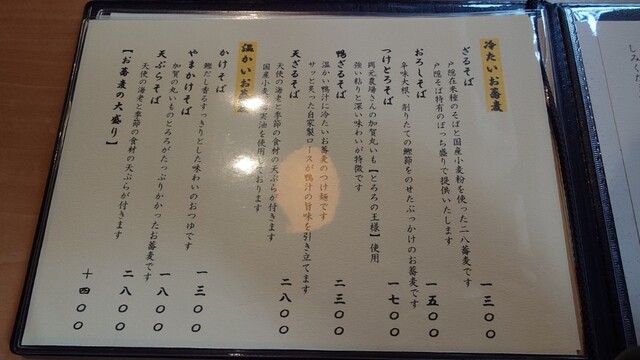 冷たいお蕎麦
ざるそば 一三〇〇
戸隠在来種のそばと国産小麦粉を使った二八蕎麦です
戸隠そば特有のぼっち盛りで提供いたします
おろしそば 一五〇〇
辛味大根、削りたての鰹節をのせたぶっかけのお蕎麦です
つけとろそば 一七〇〇
岡元農場さんの加賀丸いも【とろろの王様】使用
強い粘りと深い味わいが特徴です
鴨ざるそば 二三〇〇
温かい鴨汁に冷たいお蕎麦のつけ麺です
サッと炙った自家製ロースが鴨汁の旨味を引き立てます
天ざるそば 二八〇〇
天使の海老と季節の食材の天ぷらが付きます
国産小麦、米油を使用しております
温かいお蕎麦
かけそば 一三〇〇
鰹だし香るすっきりとした味わいのおつゆです
やまかけそば 一八〇〇
加賀の丸いものとろろがたっぷりかかったお蕎麦です
天ぷらそば 二八〇〇
天使の海老と季節の食材の天ぷらが付きます
【お蕎麦の大盛り】 十四〇〇